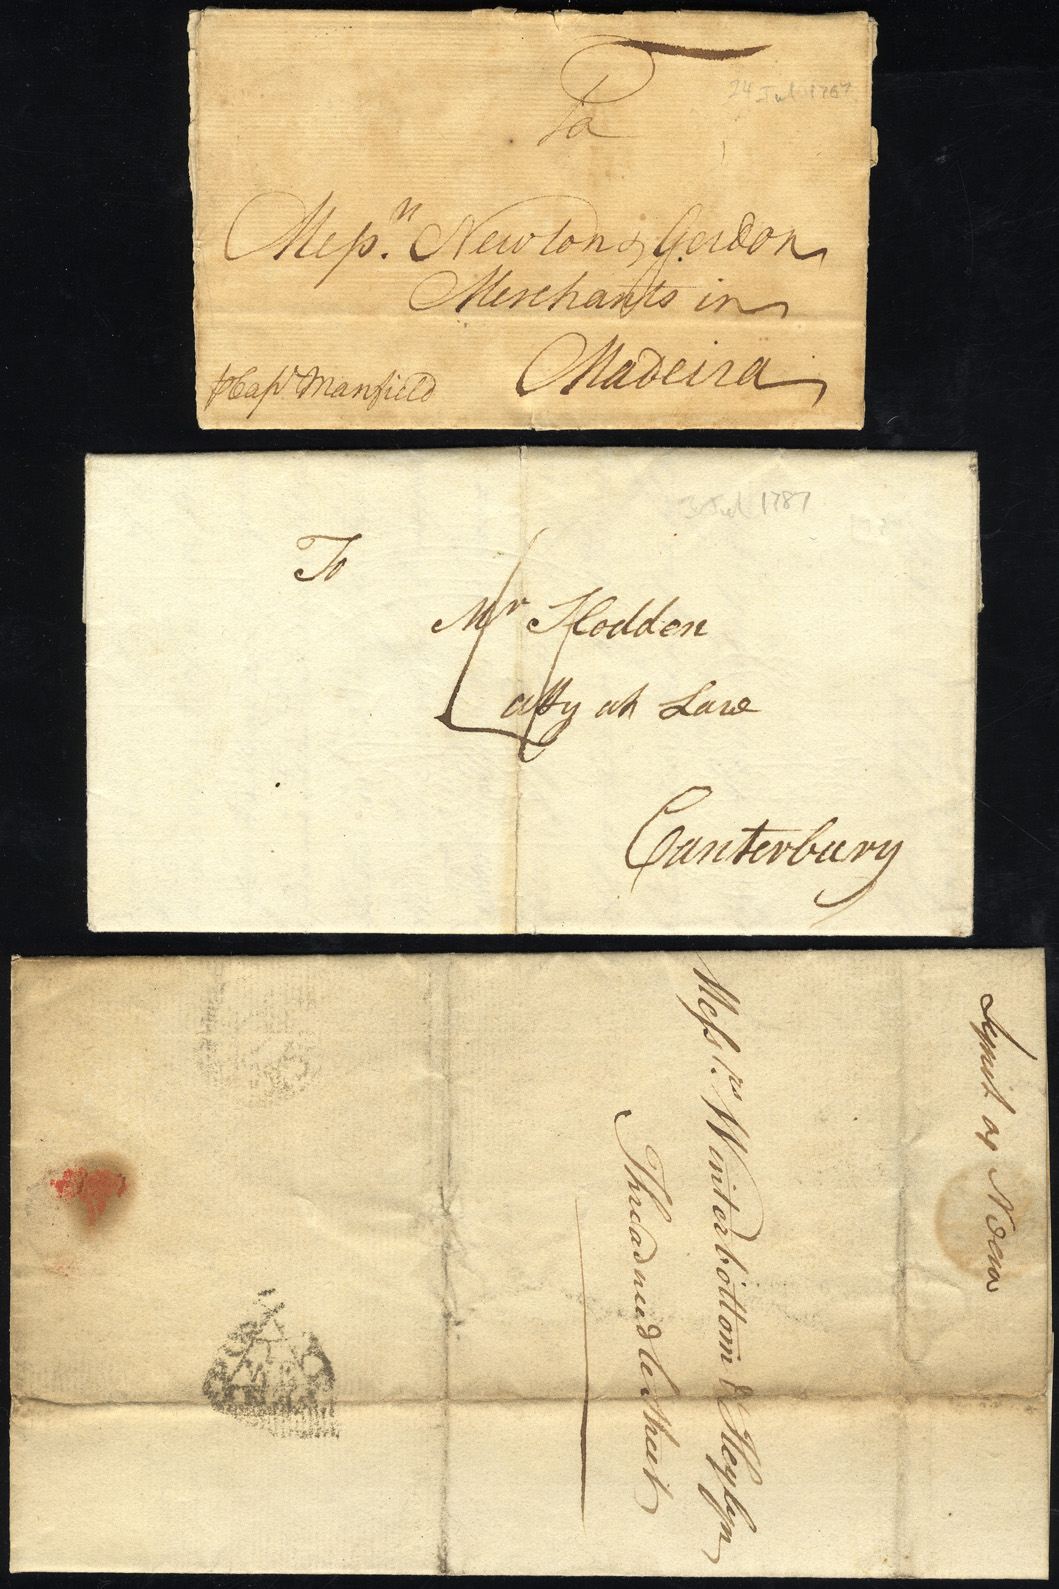 24 Jul 1767
To
Messrs. Newton & Gordon
Merchants in
Madeira
Capt Manfield
3 Jul 1787
To
Mr Hodden
atty at Law
Canterbury
Messrs. Winterbottom &
Threadneedle Street
at Noon